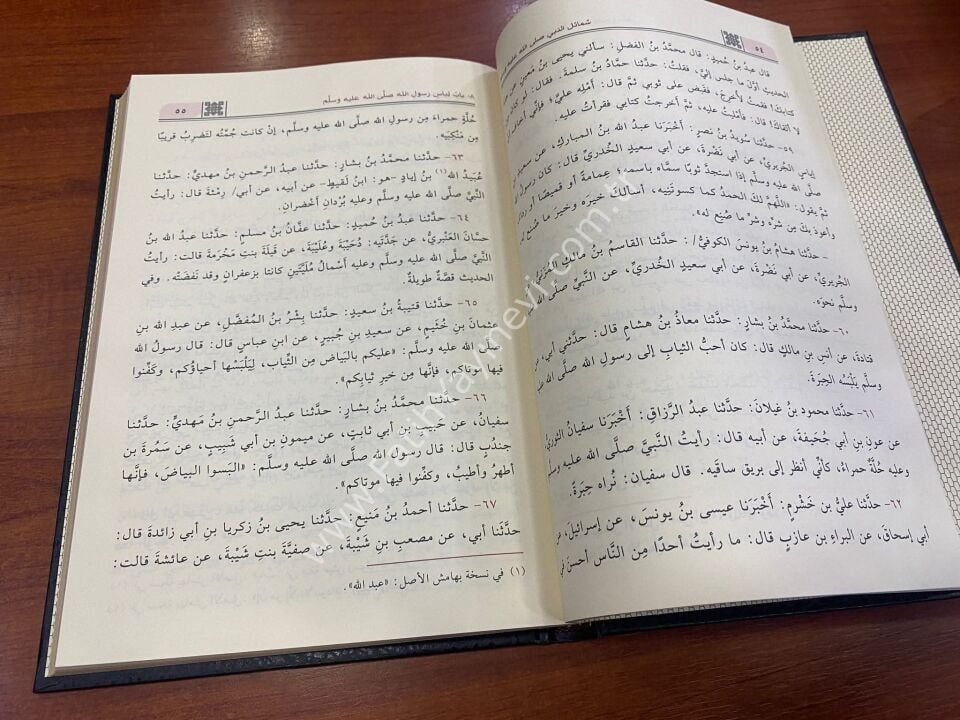 ٥٤
شمائل النبي صلى الله عليه
قال عبدُ بنُ حُميدٍ: قال محمَّدُ بنُ الفضلِ: سألني يحيى بنُ مَعينٍ عن
الحديثِ أوَّلَ ما جلس إليَّ، فقلتُ: حدَّثنا حمَّادُ بنُ سلمةَ. فقال: لو كان
كتابكَ! فقمتُ لأُخرِجَ، فقبَض على ثوبي ثمَّ قال: أَمْلِهِ عليَّ؛ فإنِّي أخافُ
لا ألقاكَ! قال: فأَملَيتُ عليه، ثمَّ أخرجتُ كتابي فقرأتُ عليه.
٥٩- حدَّثنا سُويدُ بنُ نصرٍ: أَخْبَرَنا عبدُ الله بنُ المباركِ، عن سعيدِ بنِ
إياسٍ الجُريريِّ، عن أبي نَضْرةَ، عن أبي سعيدٍ الخُدريِّ قال: كان رسولُ
صلَّى الله عليه وسلَّم إذا استجدَّ ثوبًا سمَّاه باسمِه؛ عِمامةً أو قميصًا أو رداءً
ثمَّ يقولُ: «اللَّهمَّ لكَ الحمدُ كما كسوتَنِيه، أسألكَ خيرَه وخيرَ ما صُنِعَ له
وأعوذُ بكَ مِن شرِّه وشرِّ ما صُنِعَ له».
- حدَّثنا هشامُ بنُ يونسَ الكوفيُّ/: حدَّثنا القاسمُ بنُ مالكٍ المُزَنيُّ
الجُريريِّ، عن أبي نَضْرةَ، عن أبي سعيدٍ الخُدريِّ، عن النَّبيِّ صلَّى الله
وسلَّم نحوَه.
٦٠- حدَّثنا محمَّدُ بنُ بشارٍ: حدَّثنا معاذُ بنُ هشامٍ قال: حدَّثني أبي، عن
قتادةَ، عن أنسِ بنِ مالكٍ قال: كان أحبُّ الثيابِ إلى رسولِ الله صلَّى الله عليه
وسلَّم يَلبَسُه الحِبَرةَ.
٦١- حدَّثنا محمود بنُ غيلانَ: حدَّثنا عبدُ الرَّزاقِ: أَخْبَرَنا سفيانُ الثوريُّ
عن عونِ بنِ أبي جُحَيفةَ، عن أبيه قال: رأيتُ النَّبيَّ صلَّى الله عليه وسلَّم
وعليه حُلَّةٌ حمراءُ، كأنِّي أنظر إلى بريقِ ساقَيه. قال سفيان: نُراه حِبَرةً.
٦٢- حدَّثنا عليُّ بنُ خَشْرمٍ: أَخْبَرَنا عيسى بنُ يونسَ، عن إسرائيلَ، عن
أبي إسحاقَ، عن البراءِ بنِ عازبٍ قال: ما رأيتُ أحدًا مِن النَّاس أحسنَ في
٨- باب لباس رسول الله صلَّى الله عليه وسلَّم
٥٥
حُلَّةٍ حمراءَ مِن رسولِ الله صلَّى الله عليه وسلَّم، إنْ كانت جُمَّتُه لتَضرِبُ قريبًا
مِن مَنْكِبَيه.
٦٣- حدَّثنا محمَّدُ بنُ بشارٍ: حدَّثنا عبدُ الرَّحمنِ بنُ مهديٍّ: حدَّثنا
عُبَيدُ الله (١) بنُ إيادٍ -هو: ابنُ لَقيطٍ- عن أبيه، عن أبي/ رِمْثةَ قال: رأيتُ
النَّبيَّ صلَّى الله عليه وسلَّم وعليه بُرْدان أخْضران.
٦٤- حدَّثنا عبدُ بنُ حُميدٍ: حدَّثنا عفَّانُ بنُ مسلمٍ: حدَّثنا عبدُ الله بنُ
حسَّانَ العَنْبريُّ، عن جدَّتَيه: دُحَيبةَ وعُلَيبةَ، عن قَيلةَ بنتِ مَخْرمةَ قالت: رأيتُ
النَّبيَّ صلَّى الله عليه وسلَّم وعليه أسْمالُ مُلَيَّتَينِ كانتا بزعفرانٍ وقد نَفَضَتْه. وفي
الحديث قصَّةٌ طويلةٌ.
٦٥- حدَّثنا قتيبةُ بنُ سعيدٍ: حدَّثنا بِشْرُ بنُ المُفضَّلِ، عن عبدِ الله بنِ
عثمانَ بنِ خُثَيمٍ، عن سعيدِ بنِ جُبيرٍ، عن ابنِ عباسٍ قال: قال رسولُ الله
صلَّى الله عليه وسلَّم: «عليكم بالبَياضِ مِن الثِّيابِ، لِيَلْبَسْها أحياؤُكم، وكفِّنوا
فيها موتاكم، فإنَّها مِن خيرِ ثيابِكم».
٦٦- حدَّثنا محمَّدُ بنُ بشارٍ: حدَّثنا عبدُ الرحمنِ بنُ مَهديٍّ: حدَّثنا
سفيانُ، عن حَبيبِ بنِ أبي ثابتٍ، عن ميمونِ بنِ أبي شَبيبٍ، عن سَمُرةَ بنِ
جندبٍ قال: قال رسولُ الله صلَّى الله عليه وسلَّم: «البَسوا البياضَ، فإنَّها
أطهرُ وأطيبُ، وكفِّنوا فيها موتاكم».
٦٧- حدَّثنا أحمدُ بنُ مَنيعٍ: حدَّثنا يحيى بنُ زكريا بنِ أبي زائدةَ قال:
حدَّثنا أبي، عن مصعبِ بنِ شَيْبةَ، عن صفيَّةَ بنتِ شَيْبةَ، عن عائشةَ قالت:
(١) في نسخة بهامش الأصل: «عبد الله».
www.FatihYayinevi.com.tr